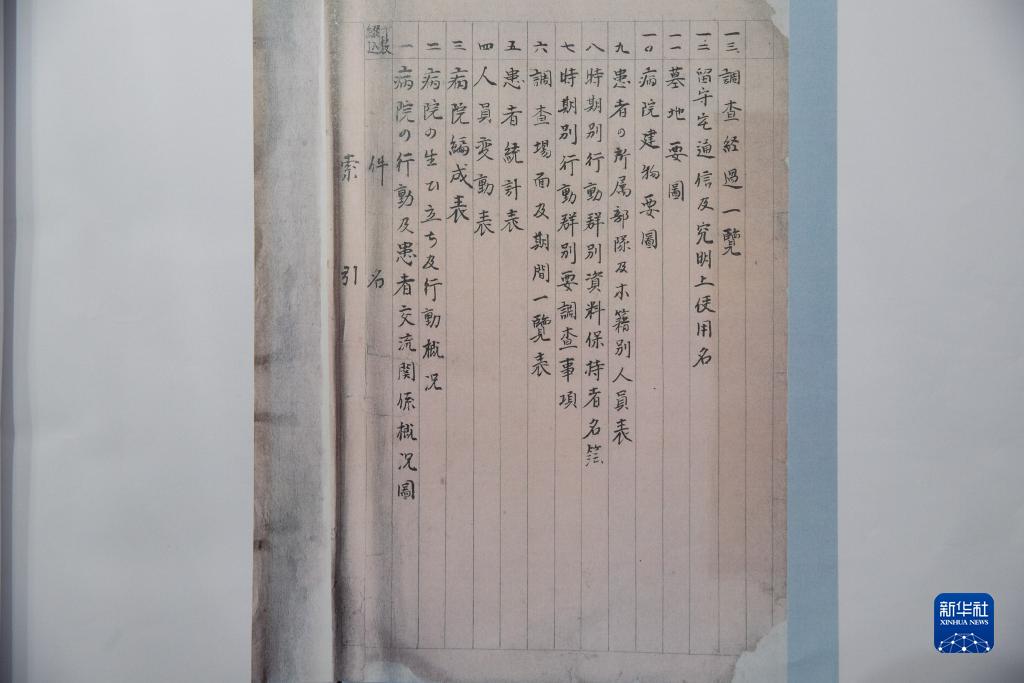 索引
件名
一 病院の行動及患者交流関係概況圖
二 病院の生ひ立ち及行動概况
三 病院編成表
四 人員変動表
五 患者統計表
六 調查場面及期間一覽表
七 時期別行動群別要調查事項
八 時期別行動群別資料保持者名簿
九 患者の所属部隊及本籍別人員表
一〇 病院建物要圖
一一 墓地要圖
一二 留守宅通信及究明上使用名
一三 調查経過一覽
新华社
XINHUA NEWS